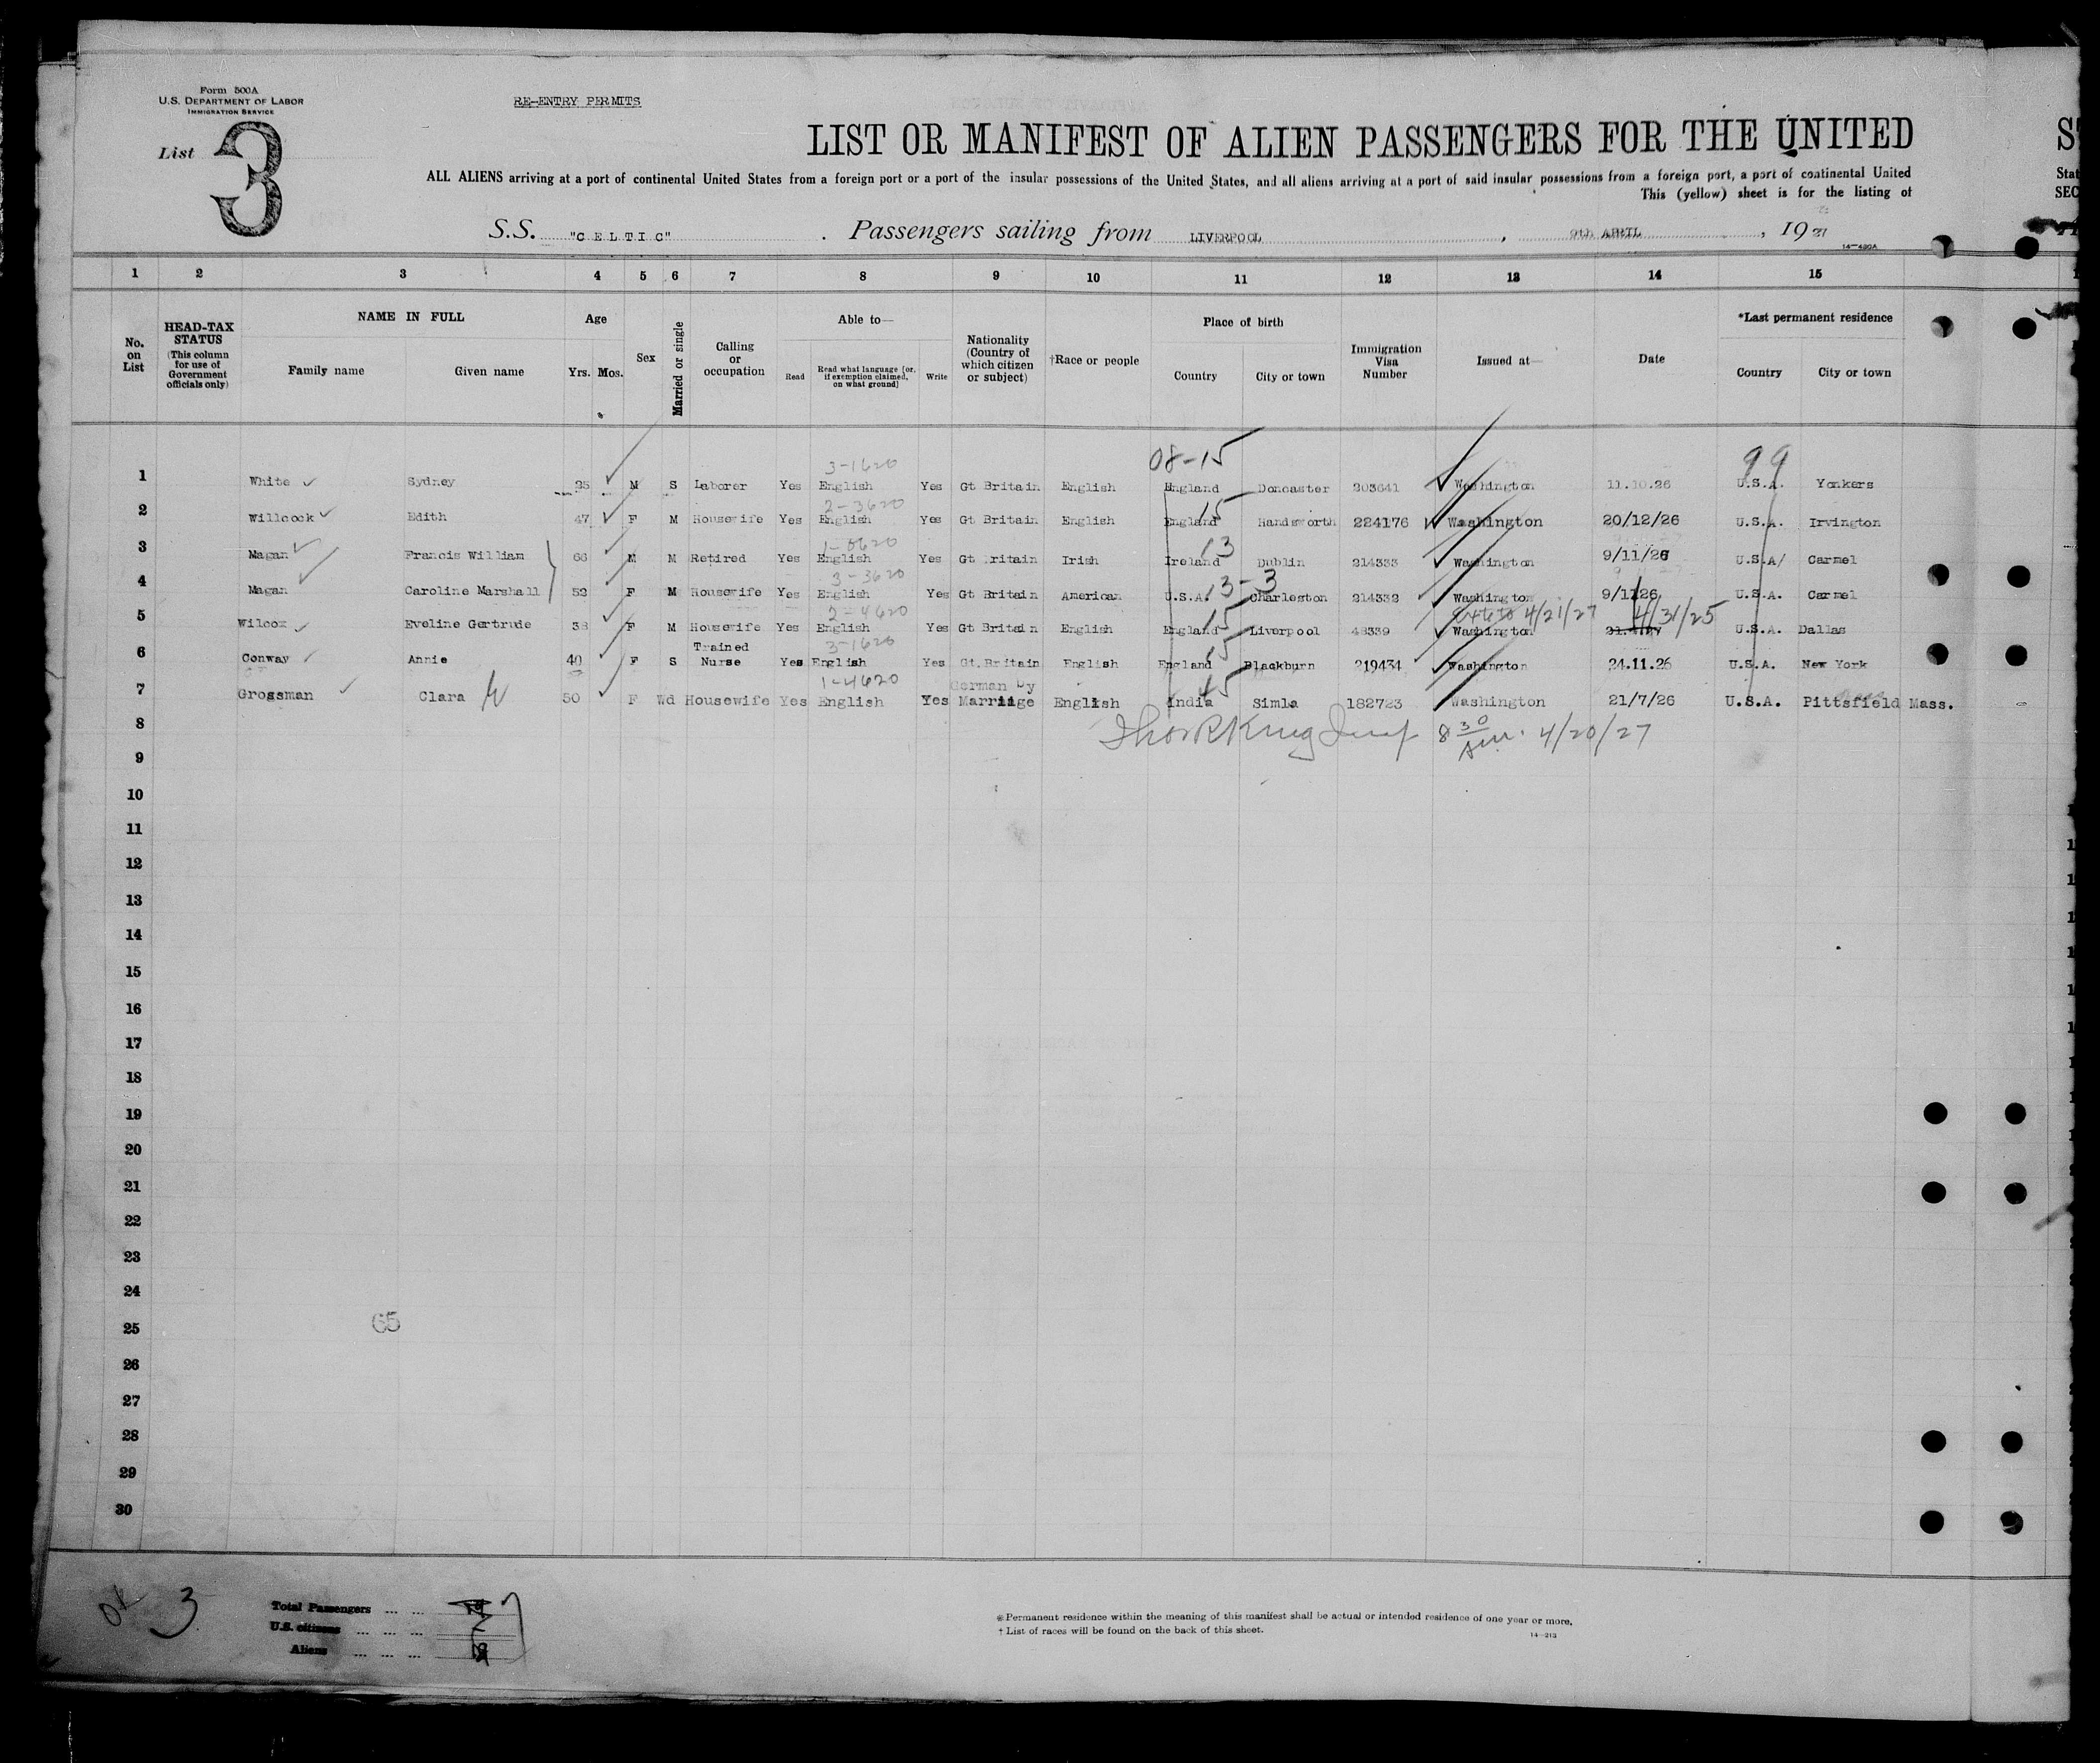 Form 500A
U.S. DEPARTMENT OF LABOR
IMMIGRATION SERVICE
RE-ENTRY PERMITS
List 3
LIST OR MANIFEST OF ALIEN PASSENGERS FOR THE UNITED
ALL ALIENS arriving at a port of continental United States from a foreign port or a port of the insular possessions of the United States, and all aliens arriving at a port of said insular possessions from a foreign port, a port of continental United
This (yellow) sheet is for the listing of
S.S. "CELTIC". Passengers sailing from LIVERPOOL, 9th APRIL, 1927
14-480A
1 2 3 4 5 6 7 8 9 10 11 12 13 14 15
No. on List
HEAD-TAX STATUS (This column for use of Government officials only)
NAME IN FULL
Family name Given name
Age
Yrs. Mos.
Sex
Married or single
Calling or occupation
Able to—
Read Read what language [or, if exemption claimed, on what ground] Write
Nationality (Country of which citizen or subject)
†Race or people
Place of birth
Country City or town
Immigration Visa Number
Issued at—
Date
*Last permanent residence
Country City or town
08-15 99
3-1620
1 White Sydney 35 M S Laborer Yes English Yes Gt Britain English England Doncaster 203641 Washington 11.10.26 U.S.A. Yonkers
2-3620 15
2 Willcock Edith 47 F M Housewife Yes English Yes Gt Britain English England Handsworth 224176 Washington 20/12/26 U.S.A. Irvington
1-6620 13
3 Magan Francis William 66 M M Retired Yes English Yes Gt ritain Irish Ireland Dublin 214333 Washington 9/11/26 U.S.A/ Carmel
3-3620 13-3
4 Magan Caroline Marshall 52 F M Housewife Yes English Yes Gt Britain American U.S.A. Charleston 214332 Washington 9/1126 U.S.A. Carmel
2-4620 15 4/21/27 4/31/25
5 Wilcox Eveline Gertrude 38 F M Housewife Yes English Yes Gt Britain English England Liverpool 48339 Washington 21.4.27 U.S.A. Dallas
3-1620 15
6 Conway Annie 40 F S Trained Nurse Yes English Yes Gt.Britain English England Blackburn 219434 Washington 24.11.26 U.S.A. New York
1-4620 45
7 Grossman Clara 50 F Wd Housewife Yes English Yes German by Marriage English India Simla 182723 Washington 21/7/26 U.S.A. Pittsfield Mass.
8 8 30 am. 4/20/27
9
10
11
12
13
14
15
16
17
18
19
20
21
22
23
24
65
25
26
27
28
29
30
OK 3
Total Passengers ... ...
U.S. citizens ... ... ...
Aliens ... ... ...
7
* Permanent residence within the meaning of this manifest shall be actual or intended residence of one year or more.
† List of races will be found on the back of this sheet.
14-213